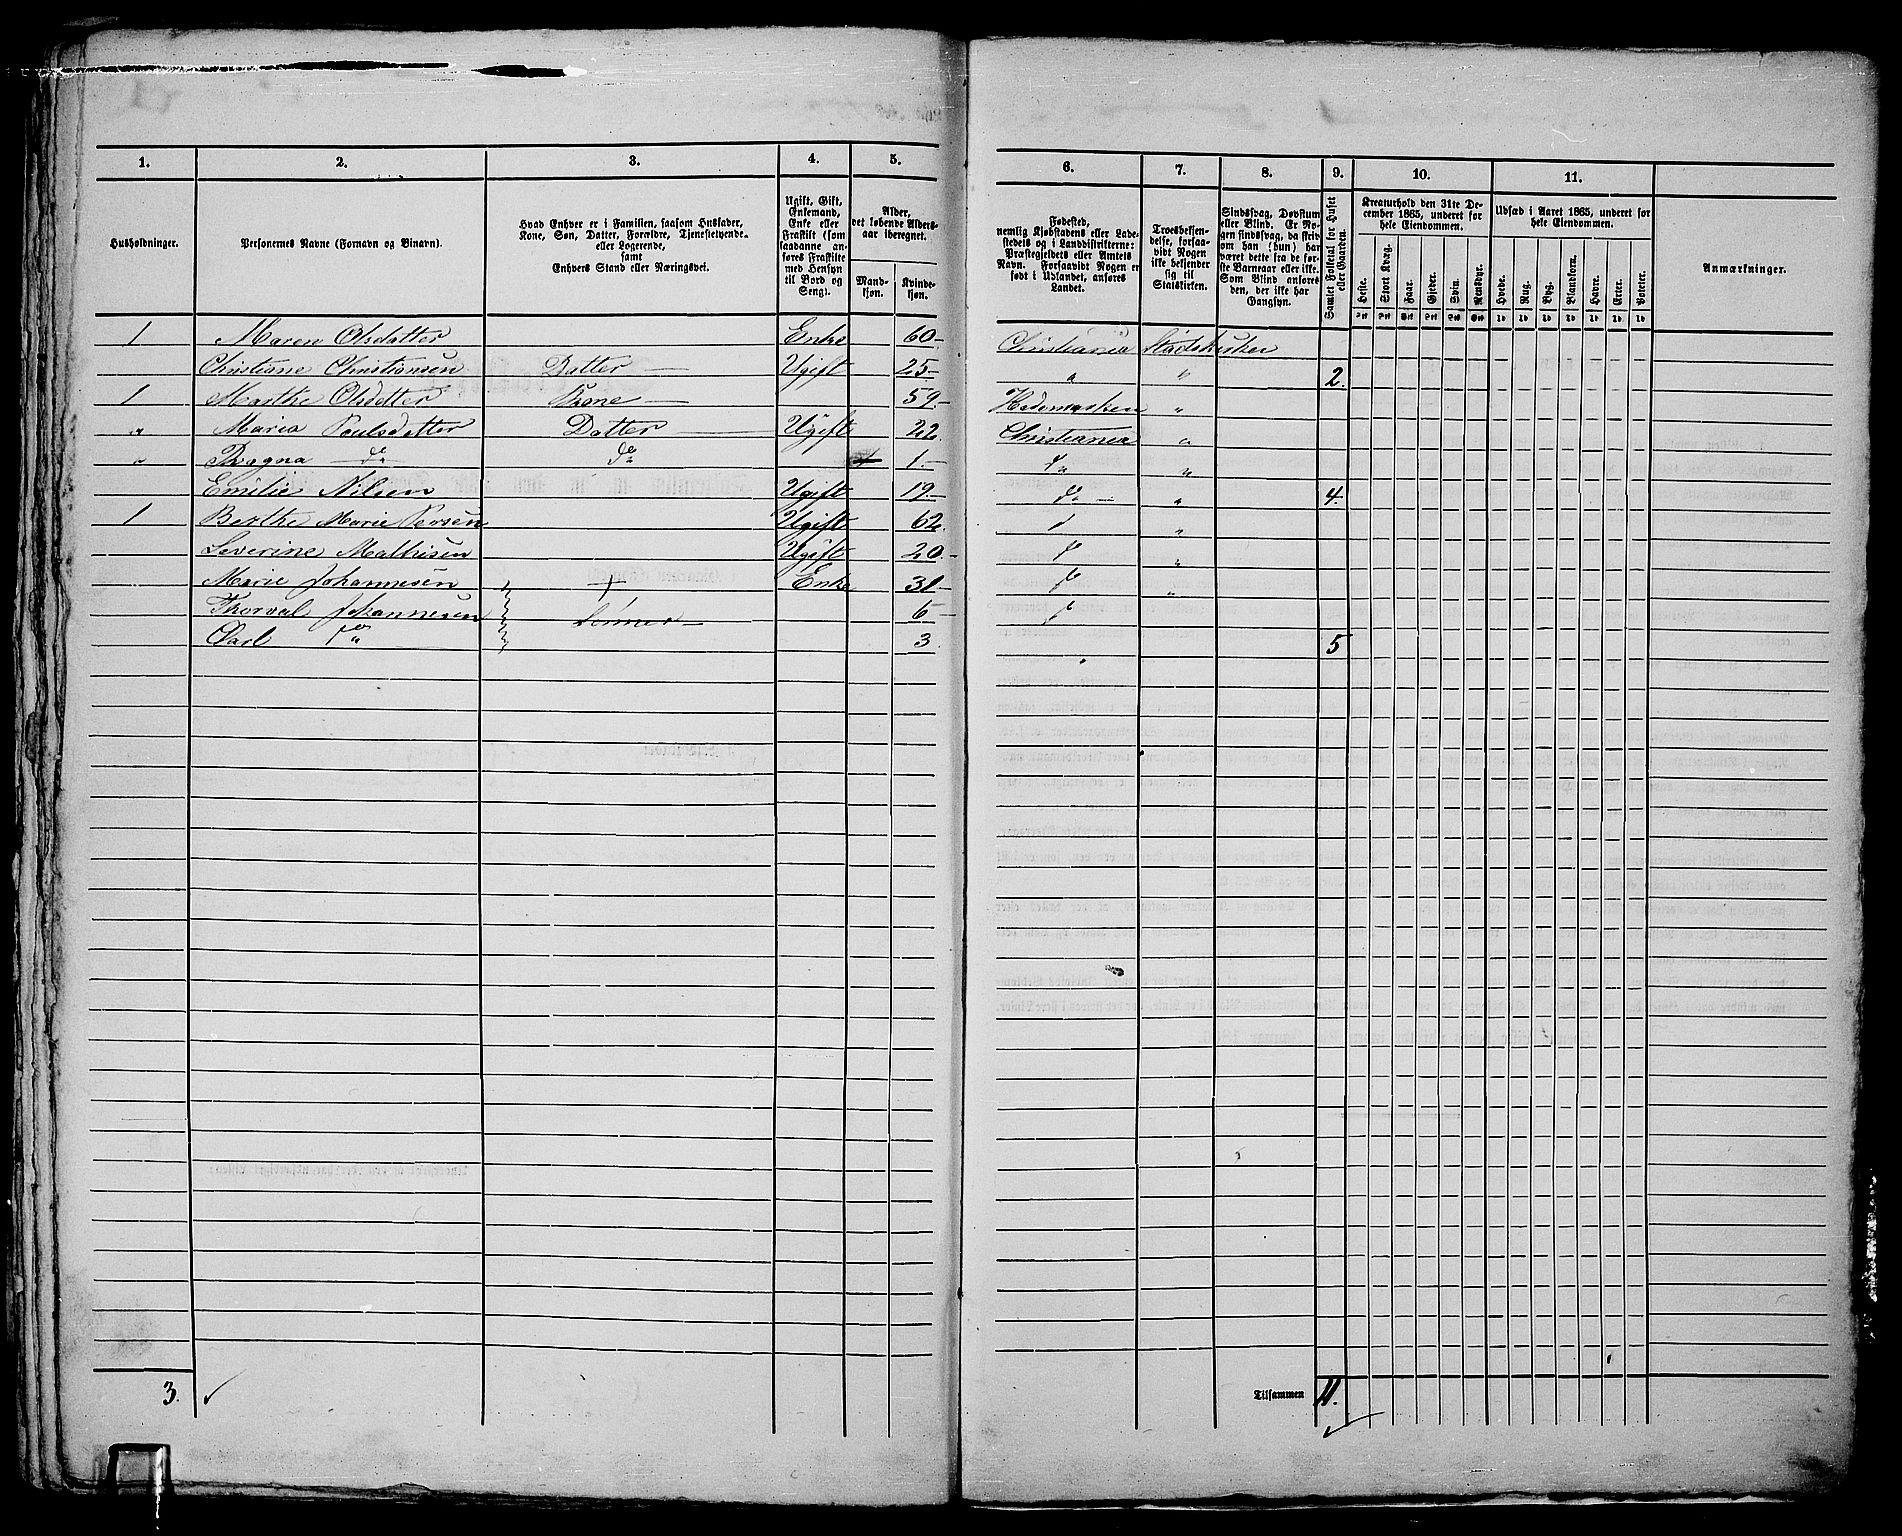 1. 2. 3. 4. 5. 6. 7. 8. 9. 10. 11.
Husholdninger.
Personernes Navne (Fornavn og Binavn).
Hvad Enhver er i Familien, saasom Husfader,
Kone, Søn, Datter, Forældre, Tjenestetyende
eller Logerende,
samt
Enhvers Stand eller Næringsvei.
Ugift, Gift,
Enkemand,
Enke eller
Fraskilt (som
saadanne an-
føres Fraskilte
med Hensyn
til Bord og
Seng).
Alder,
det løbende Alders-
aar iberegnet.
Mand-
kjøn.
Kvinde-
kjøn.
Fødested,
nemlig Kjøbstadens eller Lade-
stedets og i Landdistrikterne:
Præstegjeldets eller Amtets
Navn. Forsaavidt Nogen er
født i Udlandet, anføres
Landet.
Troesbekjen-
delse, forsaa-
vidt Nogen
ikke bekjender
sig til
Statskirken.
Sindssvag, Døvstum
eller Blind. Er No-
gen sindssvag, da skriv
om han (hun) har
været dette fra de før-
ste Barneaar eller ikke.
Som Blind anføres
den, der ikke har
Gangsyn.
Samlet Folketal for Huset
eller Gaarden.
Kreaturhold den 31te De-
cember 1865, underet for
hele Eiendommen.
Heste. Stort Kvæg. Faar. Gjeder. Svin. Rensdyr.
Udsæd i Aaret 1865, underet for
hele Eiendommen.
Hvede. Rug. Byg. Blandkorn. Havre. Erter. Poteter.
Anmærkninger.
1 Maren Olsdatter Enke 60 Christiania Statskirken
Christiane Christiansen Datter Ugift 25 " " 2.
1 Marthe Olsdatter Kone 59 Hedemarken "
" Maria Poulsdatter Datter Ugift 22. Christiania "
" Ragna do do 1 do "
Emilie Nilsen Ugift 19 do " 4.
1 Berthe Marie Persen Ugift 62. "
Severine Mathisen Ugift 20 "
Marie Johannesen Enke 31 "
Thorval Johannesen Sønner 6
Carl do 3 5
3. Tilsammen 11.